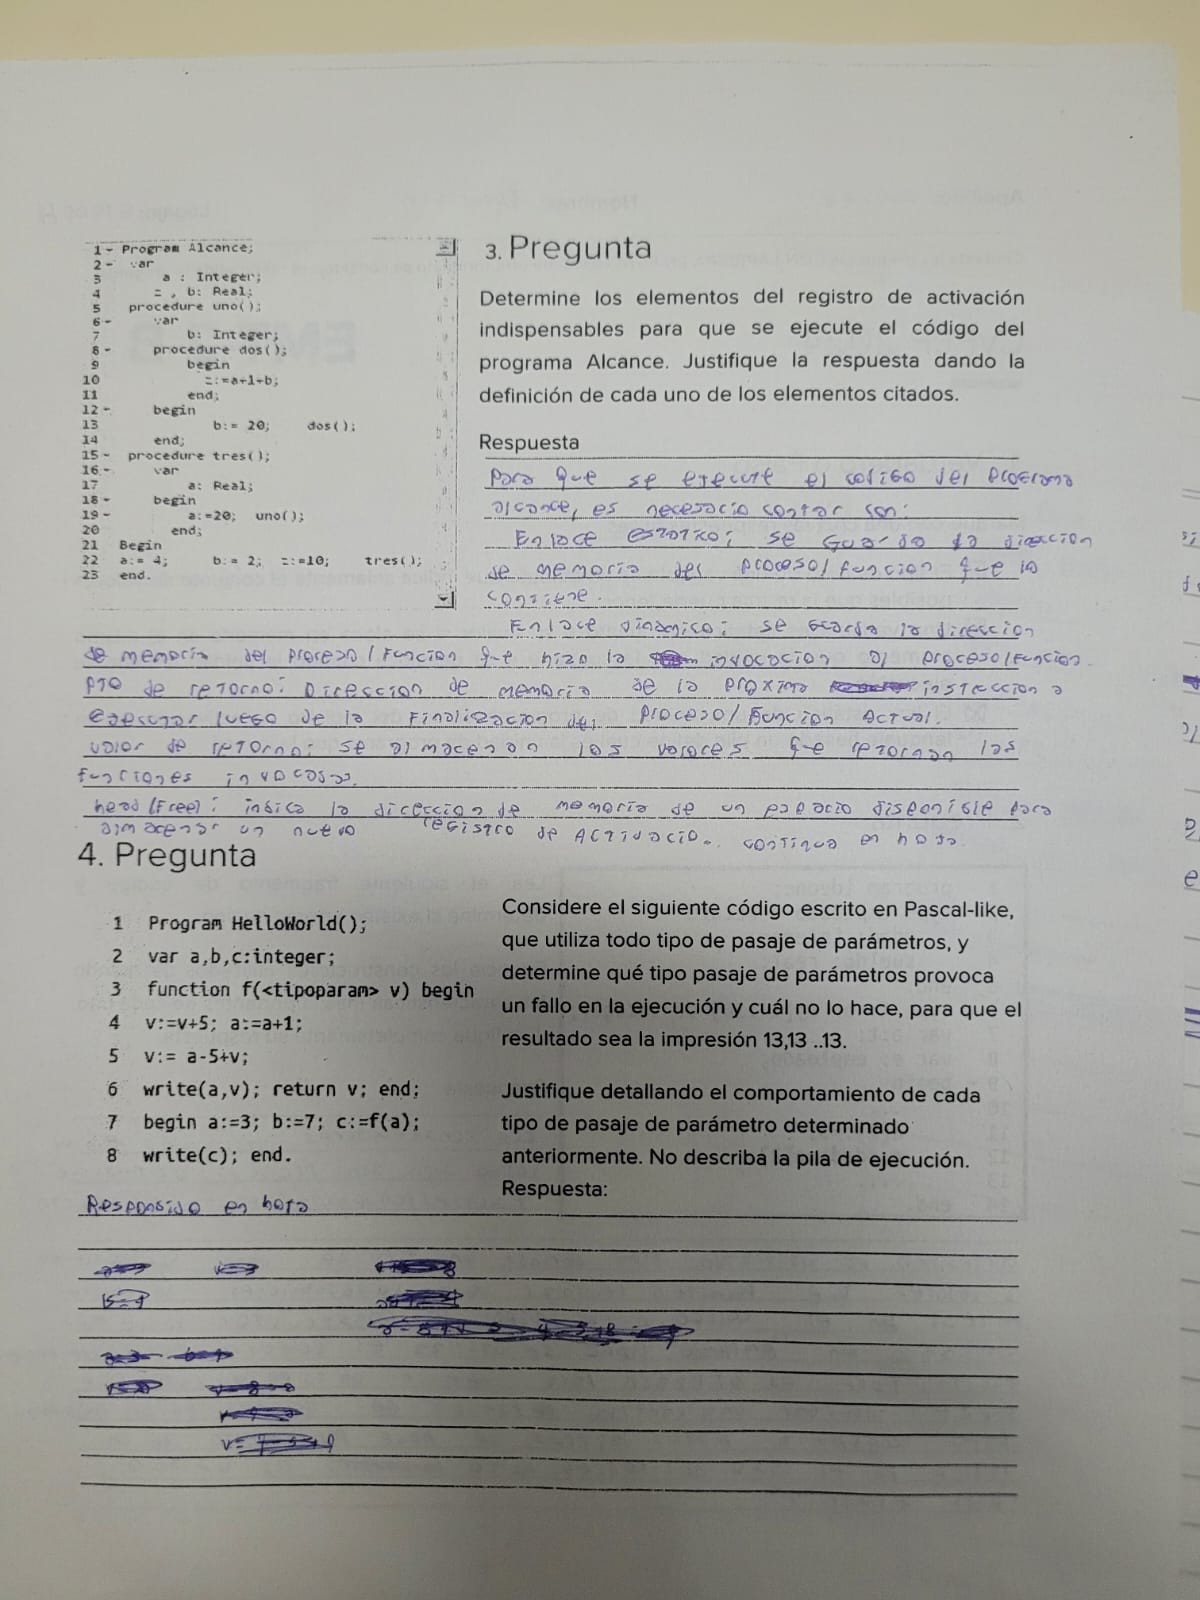 1 - Program Alcance;
2 - var
3 a : Integer;
4 z , b: Real;
5 procedure uno();
6 - var
7 b: Integer;
8 - procedure dos();
9 begin
10 z:=a+1+b;
11 end;
12 - begin
13 b:= 20; dos();
14 end;
15 - procedure tres();
16 - var
17 a: Real;
18 - begin
19 - a:=20; uno();
20 end;
21 Begin
22 a:= 4; b:= 2; z:=10; tres();
23 end.
3. Pregunta
Determine los elementos del registro de activación
indispensables para que se ejecute el código del
programa Alcance. Justifique la respuesta dando la
definición de cada uno de los elementos citados.
Respuesta
Para que se execute el codigo del programa
alcance, es necesario contar con:
Enlace estatico: se Guarda la direccion
de memoria del proceso/funcion que lo
contiene.
Enlace dinamico: se Guarda la direccion
de memoria del proceso/funcion que hizo la invocacion al proceso/funcion.
PTO de retorno: Direccion de memoria de la proxima instruccion a
ejecutar luego de la Finalizacion del proceso/Funcion Actual.
valor de retorno: se almacenan los valores que retornan las
funciones invocadas.
head (Free): indica la direccion de memoria de un espacio disponible para
almacenar un nuevo registro de Activacio. continua en hoja.
4. Pregunta
1 Program HelloWorld();
2 var a,b,c:integer;
3 function f(<tipoparam> v) begin
4 v:=v+5; a:=a+1;
5 v:= a-5+v;
6 write(a,v); return v; end;
7 begin a:=3; b:=7; c:=f(a);
8 write(c); end.
Considere el siguiente código escrito en Pascal-like,
que utiliza todo tipo de pasaje de parámetros, y
determine qué tipo pasaje de parámetros provoca
un fallo en la ejecución y cuál no lo hace, para que el
resultado sea la impresión 13,13 ..13.
Justifique detallando el comportamiento de cada
tipo de pasaje de parámetro determinado
anteriormente. No describa la pila de ejecución.
Respuesta:
Respondido en hoja